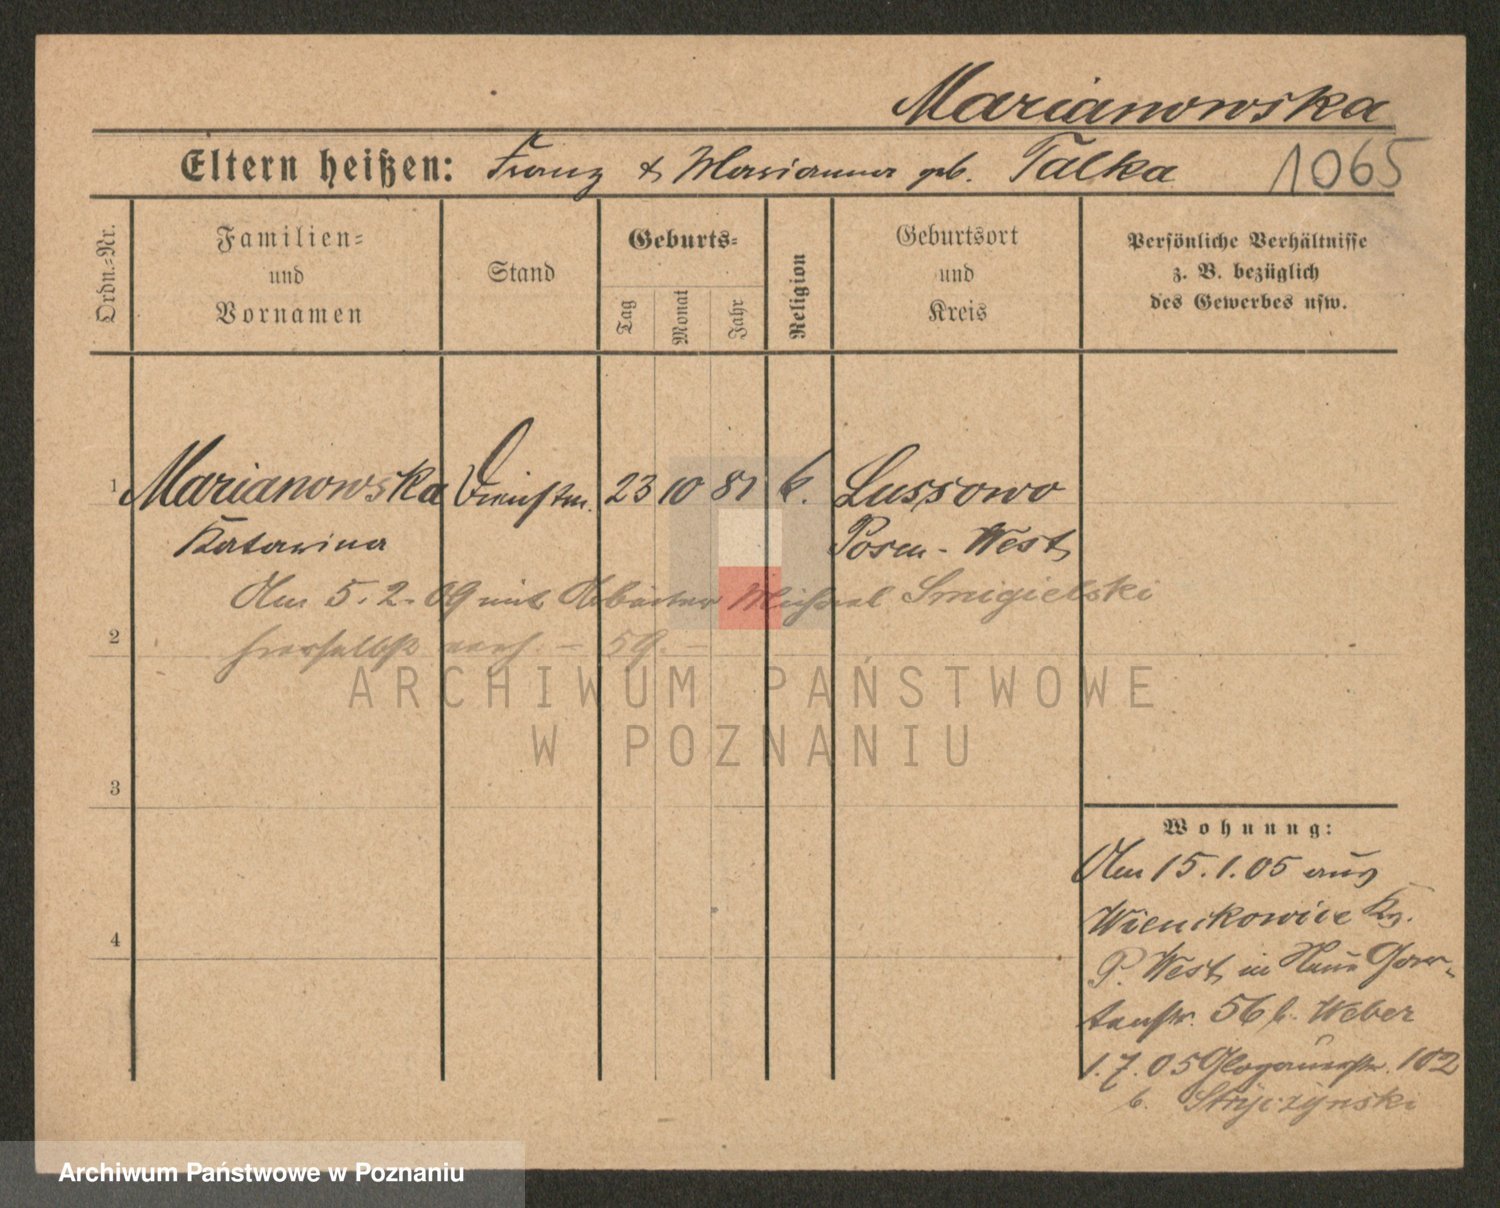 Marianowska
Eltern heißen: Franz & Marianna geb. Talka 1065
Ordn.-Nr.
Familien=
und
Vornamen
Stand
Geburts=
Tag
Monat
Jahr
Religion
Geburtsort
und
Kreis
Persönliche Verhältnisse
z. B. bezüglich
des Gewerbes usw.
1 Marianowska Dienstm. 23 10 81 k. Lussowo
Katarina Posen-West
Am 5.2.09 mit Arbeiter Michael Smigielski
2 hierselbst verh. - 59. -
ARCHIWUM PAŃSTWOWE
W POZNANIU
3
4
Wohnung:
Am 15.1.05 aus
Wienckowice Kr.
P. West in Neue Gar-
tenstr. 56 b. Weber
1.7.05 Glogauerstr. 102
b. Stryczynski
Archiwum Państwowe w Poznaniu